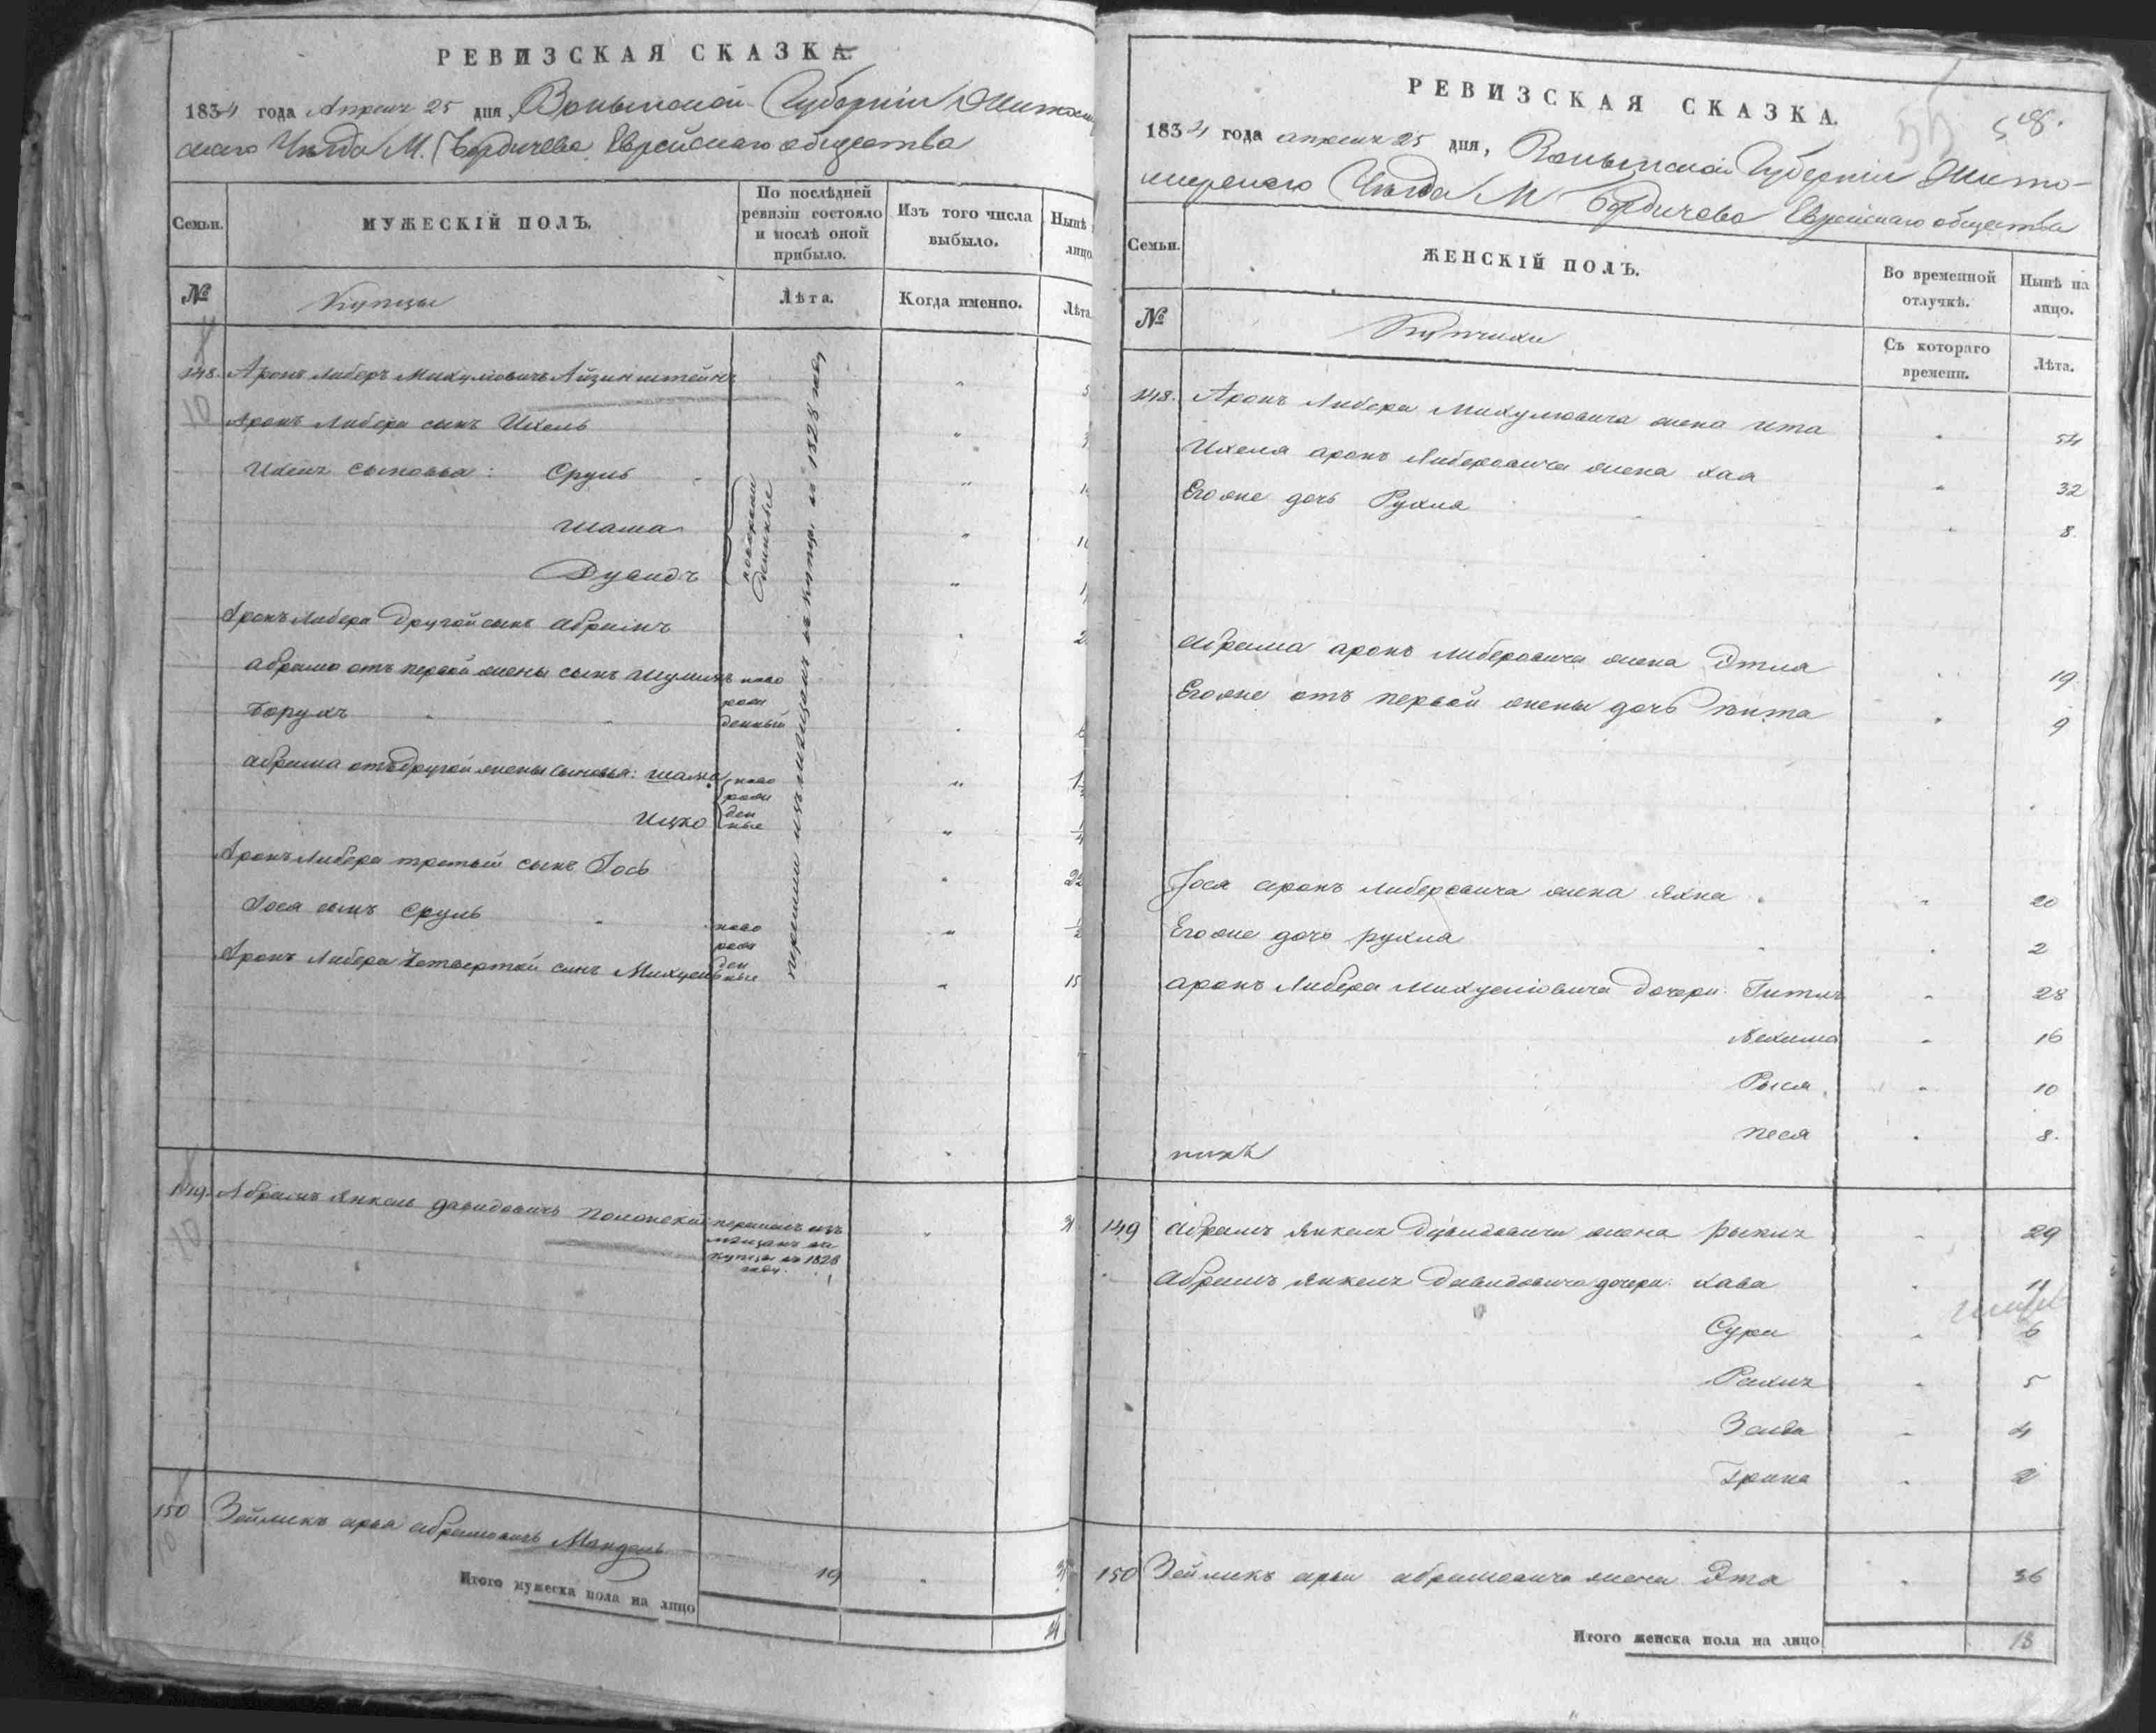 РЕВИЗСКАЯ СКАЗКА.
1834 года Апреля 25 дня, Волынской Губерніи Житомир
скаго Уѣзда М. Бердичева Еврейскаго общества
Семьи.
МУЖЕСКІЙ ПОЛЪ.
По послѣдней ревизіи состояло и послѣ оной прибыло.
Изъ того числа выбыло.
Нынѣ
лицо
№
Купцы
Лѣта.
Когда именно.
Лѣта.
148. Аронъ Либеръ Михумовичъ Айзинштейнъ
10
Аронъ Либера сынъ Ихель
Ихеля сыновья: Сруль
Шама
Дувидъ
новорож
денные
перешли изъ мещанъ въ купцы въ 1828 году
Аронъ Либера другой сынъ Абрамъ 2
Абрама отъ первой жены сынъ Шулимъ ново
Борухъ
рож
денный
Абрама отъ другой жены сыновья: Шама
Ицко
ново
рож
ден
ные
Аронъ Либера третьий сынъ Іось 22
Іося сынъ Сруль 1/2
Аронъ Либера четвертой сынъ Михуль 15
ново
рож
ден
ные
149. Абрамъ Янкель Давидовичъ Полонский перишолъ изъ
мещанъ въ
купцы въ 1828
году.
31
10
150 Зейликъ Арья Абрамовичъ Мандель 19
10
Итого мужеска пола на лицо
РЕВИЗСКАЯ СКАЗКА.
58.
1834 года апреля 25 дня, Волынской Губерніи Жито-
мирскаго Уѣзда М Бердичева Еврейскаго общества
Семьи.
ЖЕНСКІЙ ПОЛЪ.
Во временной отлучкѣ.
Нынѣ на лицо.
№
Купчихи
Съ котораго времени.
Лѣта.
148. Аронъ Либера Михумовича жена Ита 54
Ихеля Аронъ Либеровича жена Хая 32
Его же дочь Рухля 8.
Абрама Аронъ Либеровича жена Этля 19.
Его же отъ первой жены дочь 9
Іося Аронъ Либеровича жена Яхна 20
Его же дочь Рухля 2
Аронъ Либера Михумовича дочери: Гитля 28
Нехима 16
Рыся 10
Песя 8.
149 Абрамъ Янкеля Давидовича жена 29
Абрамъ Янкеля Давидовича дочери: Хава 11
Сура 6
Рахиль 5
Зелда 4
2
150 Зейликъ Арьи Абрамовича жена Эта 36
Итого женска пола на лицо 18